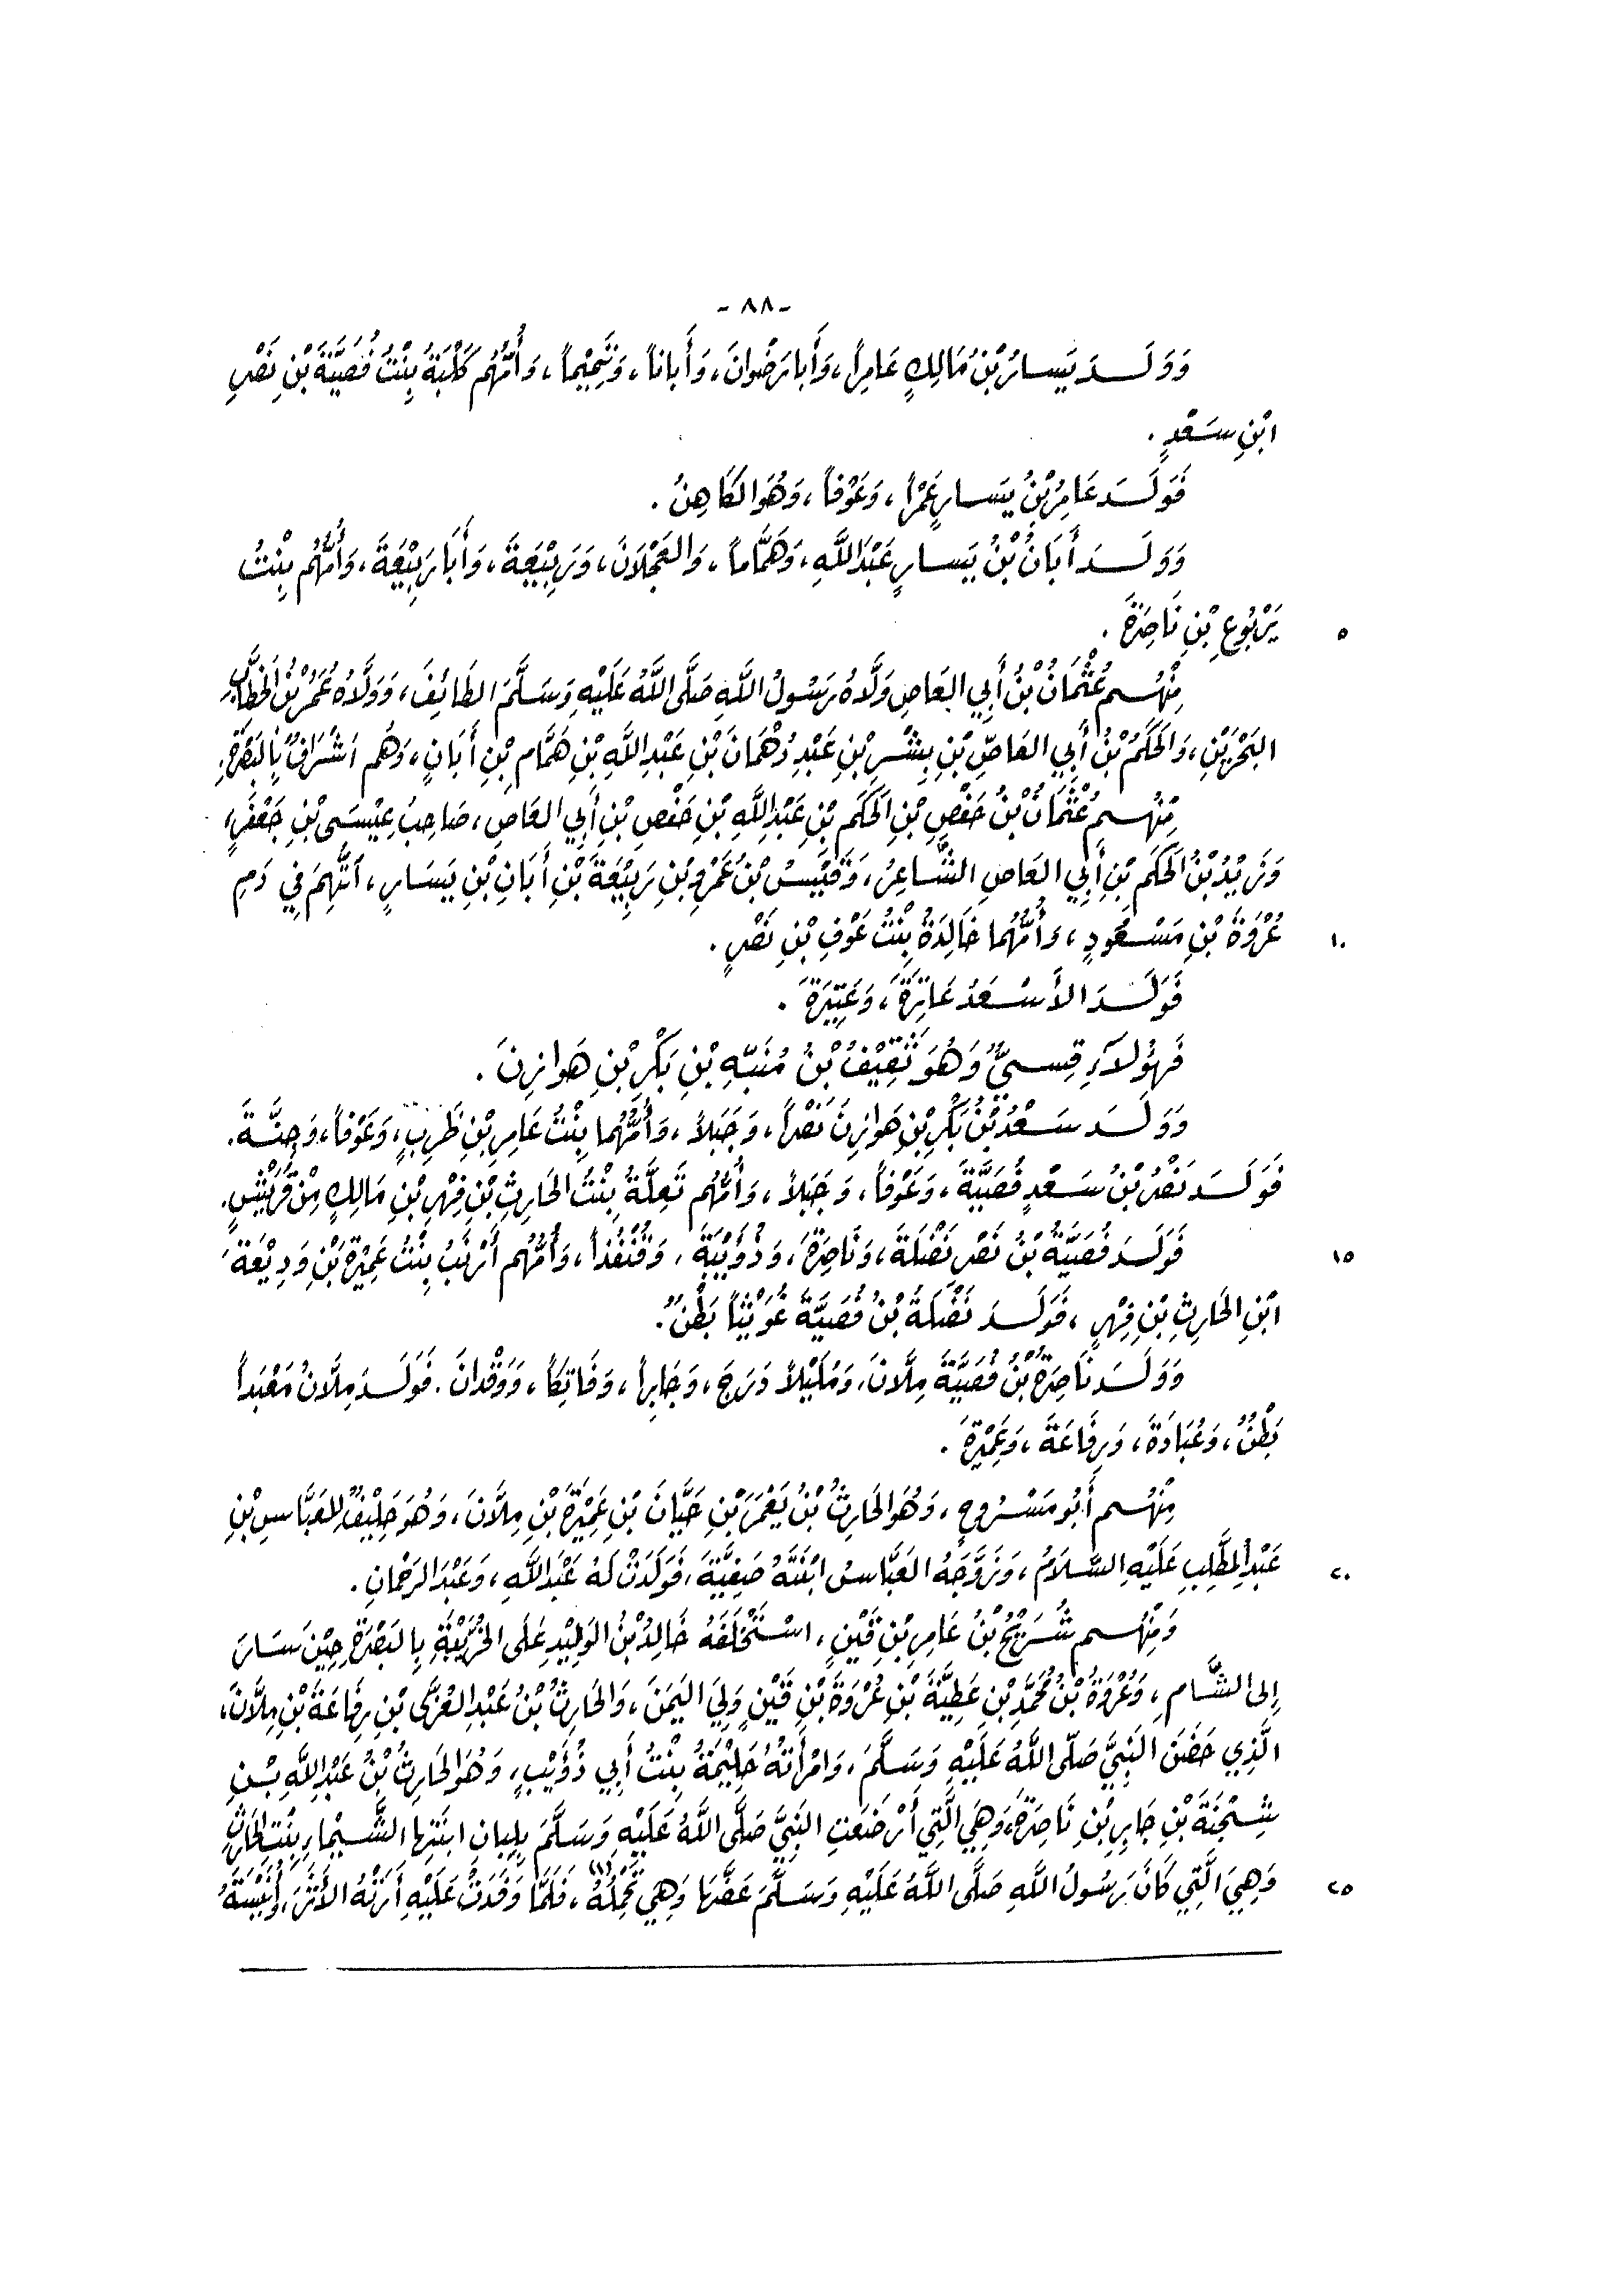 - ٨٨ -
وَوَلَدَ يَسارُ بْنُ مَالِكٍ عَامِراً، وَأَبا رَضْوانَ، وَأَباناً، وَتَمِيْماً، وَأُمُّهُم كَلْبَةُ بِنْتُ فُصَيَّةَ بْنِ نَصْرِ
ابْنِ سَعْدٍ .
فَوَلَدَ عَامِرُ بْنُ يَسارٍ عَمْراً، وَعَوْفاً، وَهُوَ الكَاهِنُ .
وَوَلَدَ أَبَانُ بْنُ يَسارٍ عَبْدَ اللَّهِ، وَهَمَّاماً، وَالعَجْلَانَ، وَرَبِيْعَةَ، وَأَبَا رَبِيْعَةَ، وَأُمُّهُم بِنْتُ
يَرْبُوعِ بْنِ نَاصِرَةَ . ٥
مِنْهُم عُثْمَانُ بْنُ أَبِي العَاصِ وَلَّاهُ رَسُولُ اللَّهِ صَلَّى اللَّهُ عَلَيْهِ وَسَلَّمَ الطَائِفَ، وَوَلَّاهُ عُمَرُ بْنُ الخَطَّابِ
البَحْرَيْنِ، وَالحَكَمُ بْنُ أَبِي العَاصِ بْنِ بِشْرِ بْنِ عَبْدِ دُهْمَانَ بْنِ عَبْدِ اللَّهِ بْنِ هَمَّامِ بْنِ أَبَانٍ، وَهُم اشْرَافٌ بِالبَصْرَةِ.
مِنْهُم عُثْمَانُ بْنُ حَفْصِ بْنِ الحَكَمِ بْنِ عَبْدِ اللَّهِ بْنِ حَفْصِ بْنِ أَبِي العَاصِ، صَاحِبُ عِيْسَى بْنِ جَعْفَرٍ،
وَيَزِيْدُ بْنُ الحَكَمِ بْنِ أَبِي العَاصِ الشَّاعِرُ، وَقَيْسُ بْنُ عَمْرِو بْنِ رَبِيْعَةَ بْنِ أَبَانِ بْنِ يَسَارٍ، اتُّهِمَ فِي دَمِ
عُرْوَةَ بْنِ مَسْعُودٍ، وَأُمُّهُما خَالِدَةُ بِنْتُ عَوْفِ بْنِ نَصْرٍ . ١٠
فَوَلَدَ الأَسْعَدُ عَاتِرَةَ، وَعَتِيْرَةَ .
فَهَؤُلَاءِ قِسيُّ وَهُوَ ثَقِيْفُ بْنُ مُنَبّهِ بْنِ بَكْرِ بْنِ هَوازِنَ .
وَوَلَدَ سَعْدُ بْنُ بَكْرِ بْنِ هَوازِنَ نَصْراً، وَجَبَلاً، وَأُمُّهُما بِنْتُ عَامِرِ بْنِ ظَرِبٍ، وَعَوْفاً، وَجِنَّةَ.
فَوَلَدَ نَصْرُ بْنُ سَعْدٍ فُصَيَّةَ، وَعَوْفاً، وَجَبَلاً، وَأُمُّهُم تَعِلَّةُ بِنْتُ الحَارِثِ بْنِ فِهْرِ بْنِ مَالِكٍ مِنْ قُرَيْشٍ.
فَوَلَدَ فُصَيَّةُ بْنُ نَصْرٍ نَضْلَةَ، وَنَاصِرَةَ، وَذُؤَيْبَةَ، وَقُنْفُذاً، وَأُمُّهُم أَرْنَبُ بِنْتُ عَمِيْرَةَ بْنِ وَدِيْعَةَ ١٥
ابْنِ الحَارِثِ بْنِ فِهْرٍ، فَوَلَدَ نَضْلَةُ بْنُ فُصَيَّةَ غُوَيْثاً بَطْنٌ .
وَوَلَدَ نَاصِرَةُ بْنُ فُصَيَّةَ مِلَّانَ، وَمُلَيْلاً وَرَجَ، وَجَابِراً، وَفَاتِكاً، وَوَقْدَانَ. فَوَلَدَ مِلَّانُ مَعْبَداً
بَطْنٌ، وَعُبَادَةَ، وَرِفَاعَةَ، وَعَمِيْرَةَ .
مِنْهُم أَبُو مَسْرُوحٍ، وَهُوَ الحَارِثُ بْنُ يَعْمَرَ بْنِ حَيَّانَ بْنِ عَمِيْرَةَ بْنِ مِلَّانَ، وَهُوَ حَلِيْفٌ لِلعَبَّاسِ بْنِ
عَبْدِ المطَّلِبِ عَلَيْهِ السَّلَامُ، وَزَوَّجَهُ العَبَّاسُ ابْنَتَهُ صَفِيَّةَ، فَوَلَدَتْ لَهُ عَبْدَ اللَّهِ، وَعَبْدَ الرَحْمَانِ. ٢٠
وَمِنْهُم شُرَيْحُ بْنُ عَامِرِ بْنِ قَيْنٍ، اسْتَخْلَفَهُ خَالِدُ بْنُ الوَلِيْدِ عَلَى الخُرَيْبَةِ بِالبَصْرَةِ حِيْنَ سَارَ
إِلى الشَّامِ، وَعُرْوَةُ بْنُ مُحَمَّدِ بْنِ عَطِيَّةَ بْنِ عُرْوَةَ بْنِ قَيْنٍ وَلِيَ اليَمَنَ، وَالحَارِثُ بْنُ عَبْدِ العُزَّى بْنِ رِفَاعَةَ بْنِ مِلَّانَ،
الَّذِي حَضَنَ النَبِيَّ صَلّى اللَّهُ عَلَيْهِ وَسَلَّمَ، وَامْرَأَتُهُ حَلِيْمَةُ بِنْتُ أَبِي ذُؤَيْبٍ، وَهُوَ الحَارِثُ بْنُ عَبْدِ اللَّهِ بْنِ
شِجْنَةَ بْنِ جَابِرِ بْنِ نَاصِرَةَ، وَهِيَ الَّتِي أَرْضَعَتِ النَبِيَّ صَلَّى اللَّهُ عَلَيْهِ وَسَلَّمَ بِلِبانِ ابْنَتِها الشَّيْماءِ بِنْتِ الحَارِثِ
وَهِيَ الَّتِي كَانَ رَسُولُ اللَّهِ صَلَّى اللَّهُ عَلَيْهِ وَسَلَّمَ عَضَّها وَهِيَ تَحْمِلُهُ (١)، فَلَمَّا وَفَدَتْ عَلَيْهِ أَرَتْهُ الأَثَرَ، ٢٥